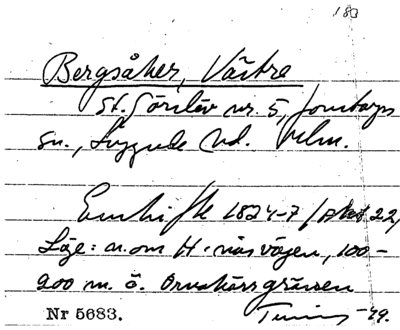 180
Bergsåker, Västra
St. Görslöv nr. 5, Jonstorps
sn., Luggude hd. Mlm.
Enskifte 1824-7 / Akt 22,
Läge: n. om H-näsvägen, 100-
200 m. ö. Ornakärrsgränsen
Nr 5683.
-29.